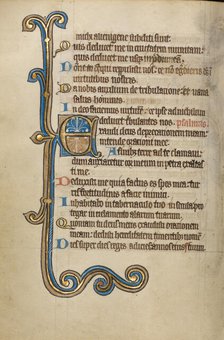 michi alienigene subditi sunt
Quis deducet me in civitatem munitam:
quis deducet me usque in ydumeam
Nonne tu deus qui repulisti nos: et non egredieris
virtutibus nostris
Da nobis auxilium de tribulatione
salus hominis
In deo faciemus virtutem: et ipse ad nichilum
deducet tribulantes nos psalmus
Exaudi deus deprecationem meam:
intende orationi mee
A finibus terre ad te clamavi:
dum anxiaretur cor meum in petra exaltasti
me
Deduxisti me quia factus es spes mea: turris
fortitudinis a facie inimici
Inhabitabo in tabernaculo tuo in secula: protegar
in velamento alarum tuarum
Quoniam tu deus meus exaudisti orationem
meam: dedisti hereditatem timentibus nomen
Dies super dies regis adicies annos